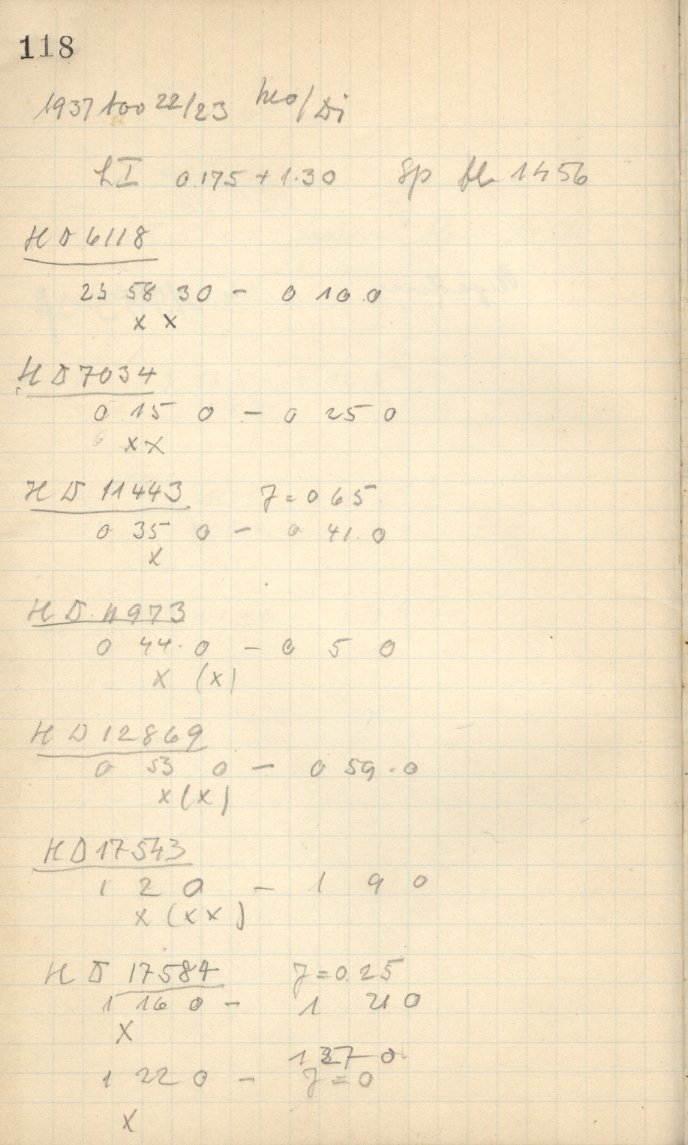 118
1937 Nov 22/23 Mo/Di
LI 0.175 + 1.30 Sp 1456
HD 6118
23 58 30 - 0 10 0
x x
HD 7034
0 15 0 - 0 25 0
x x
HD 11443 J = 0 65
0 35 0 - 0 41. 0
x
HD 11973
0 44. 0 - 0 5 0
x (x)
HD 12869
0 53 0 - 0 59. 0
x (x)
HD 17543
1 2 0 - 1 9 0
x (x x)
HD 17584 J = 0.25
1 16 0 - 1 21 0
x
1 27 0
1 22 0 - J = 0
x